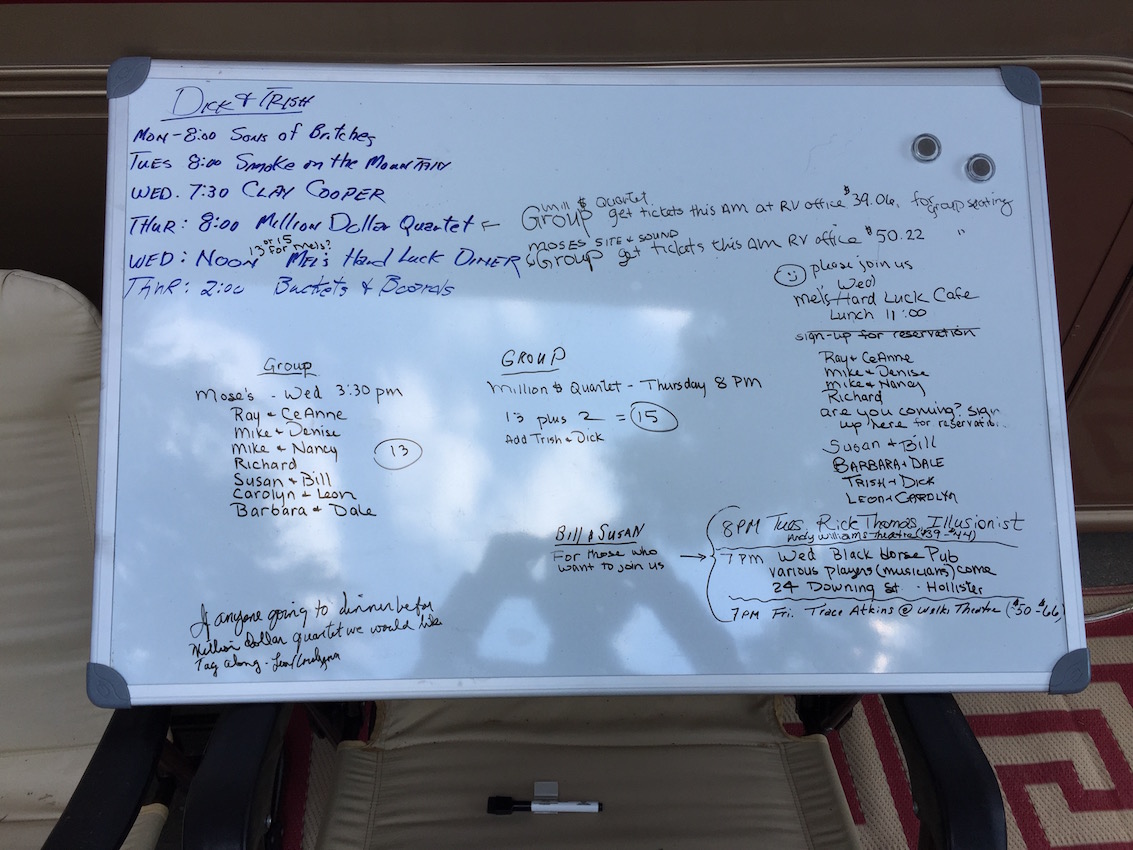 Dick & Trish
Mon - 8:00 Sons of Britches
Tues 8:00 Smoke on the Mountain
Wed. 7:30 Clay Cooper
Thur: 8:00 Million Dollar Quartet
13 or 15 for Mel's?
Wed: Noon Mel's Hard Luck Diner
Thur: 2:00 Buckets & Boards
mill $ Quartet
Group get tickets this AM at RV office $39.06. for group seating
Moses site & sound
& Group get tickets this AM RV office $50.22 "
please join us
Wed
Mel's Hard Luck Cafe
Lunch 11:00
sign-up for reservation
Ray & CeAnne
Mike & Denise
Mike & Nancy
Richard
are you coming? sign
up here for reservati..
Susan & Bill
Barbara & Dale
Trish & Dick
Leon & Carolyn
Group
Mose's - Wed 3:30 pm
Ray & CeAnne
Mike & Denise
Mike & Nancy
Richard
Susan & Bill
Carolyn & Leon
Barbara & Dale
13
GROUP
Million $ Quartet - Thursday 8 PM
13 plus 2 = 15
Add Trish & Dick
Bill & Susan
For those who
want to join us
8PM Tues. Rick Thomas, Illusionist
Andy Williams theatre ($39-$44)
7 PM Wed Black Horse Pub
various players (musicians) come
24 Downing St - Hollister
7PM Fri. Trace Atkins @ Welk Theatre ($50-$66)
If anyone going to dinner before
Million dollar quartet we would like
Tag along - Leon/Carolyn